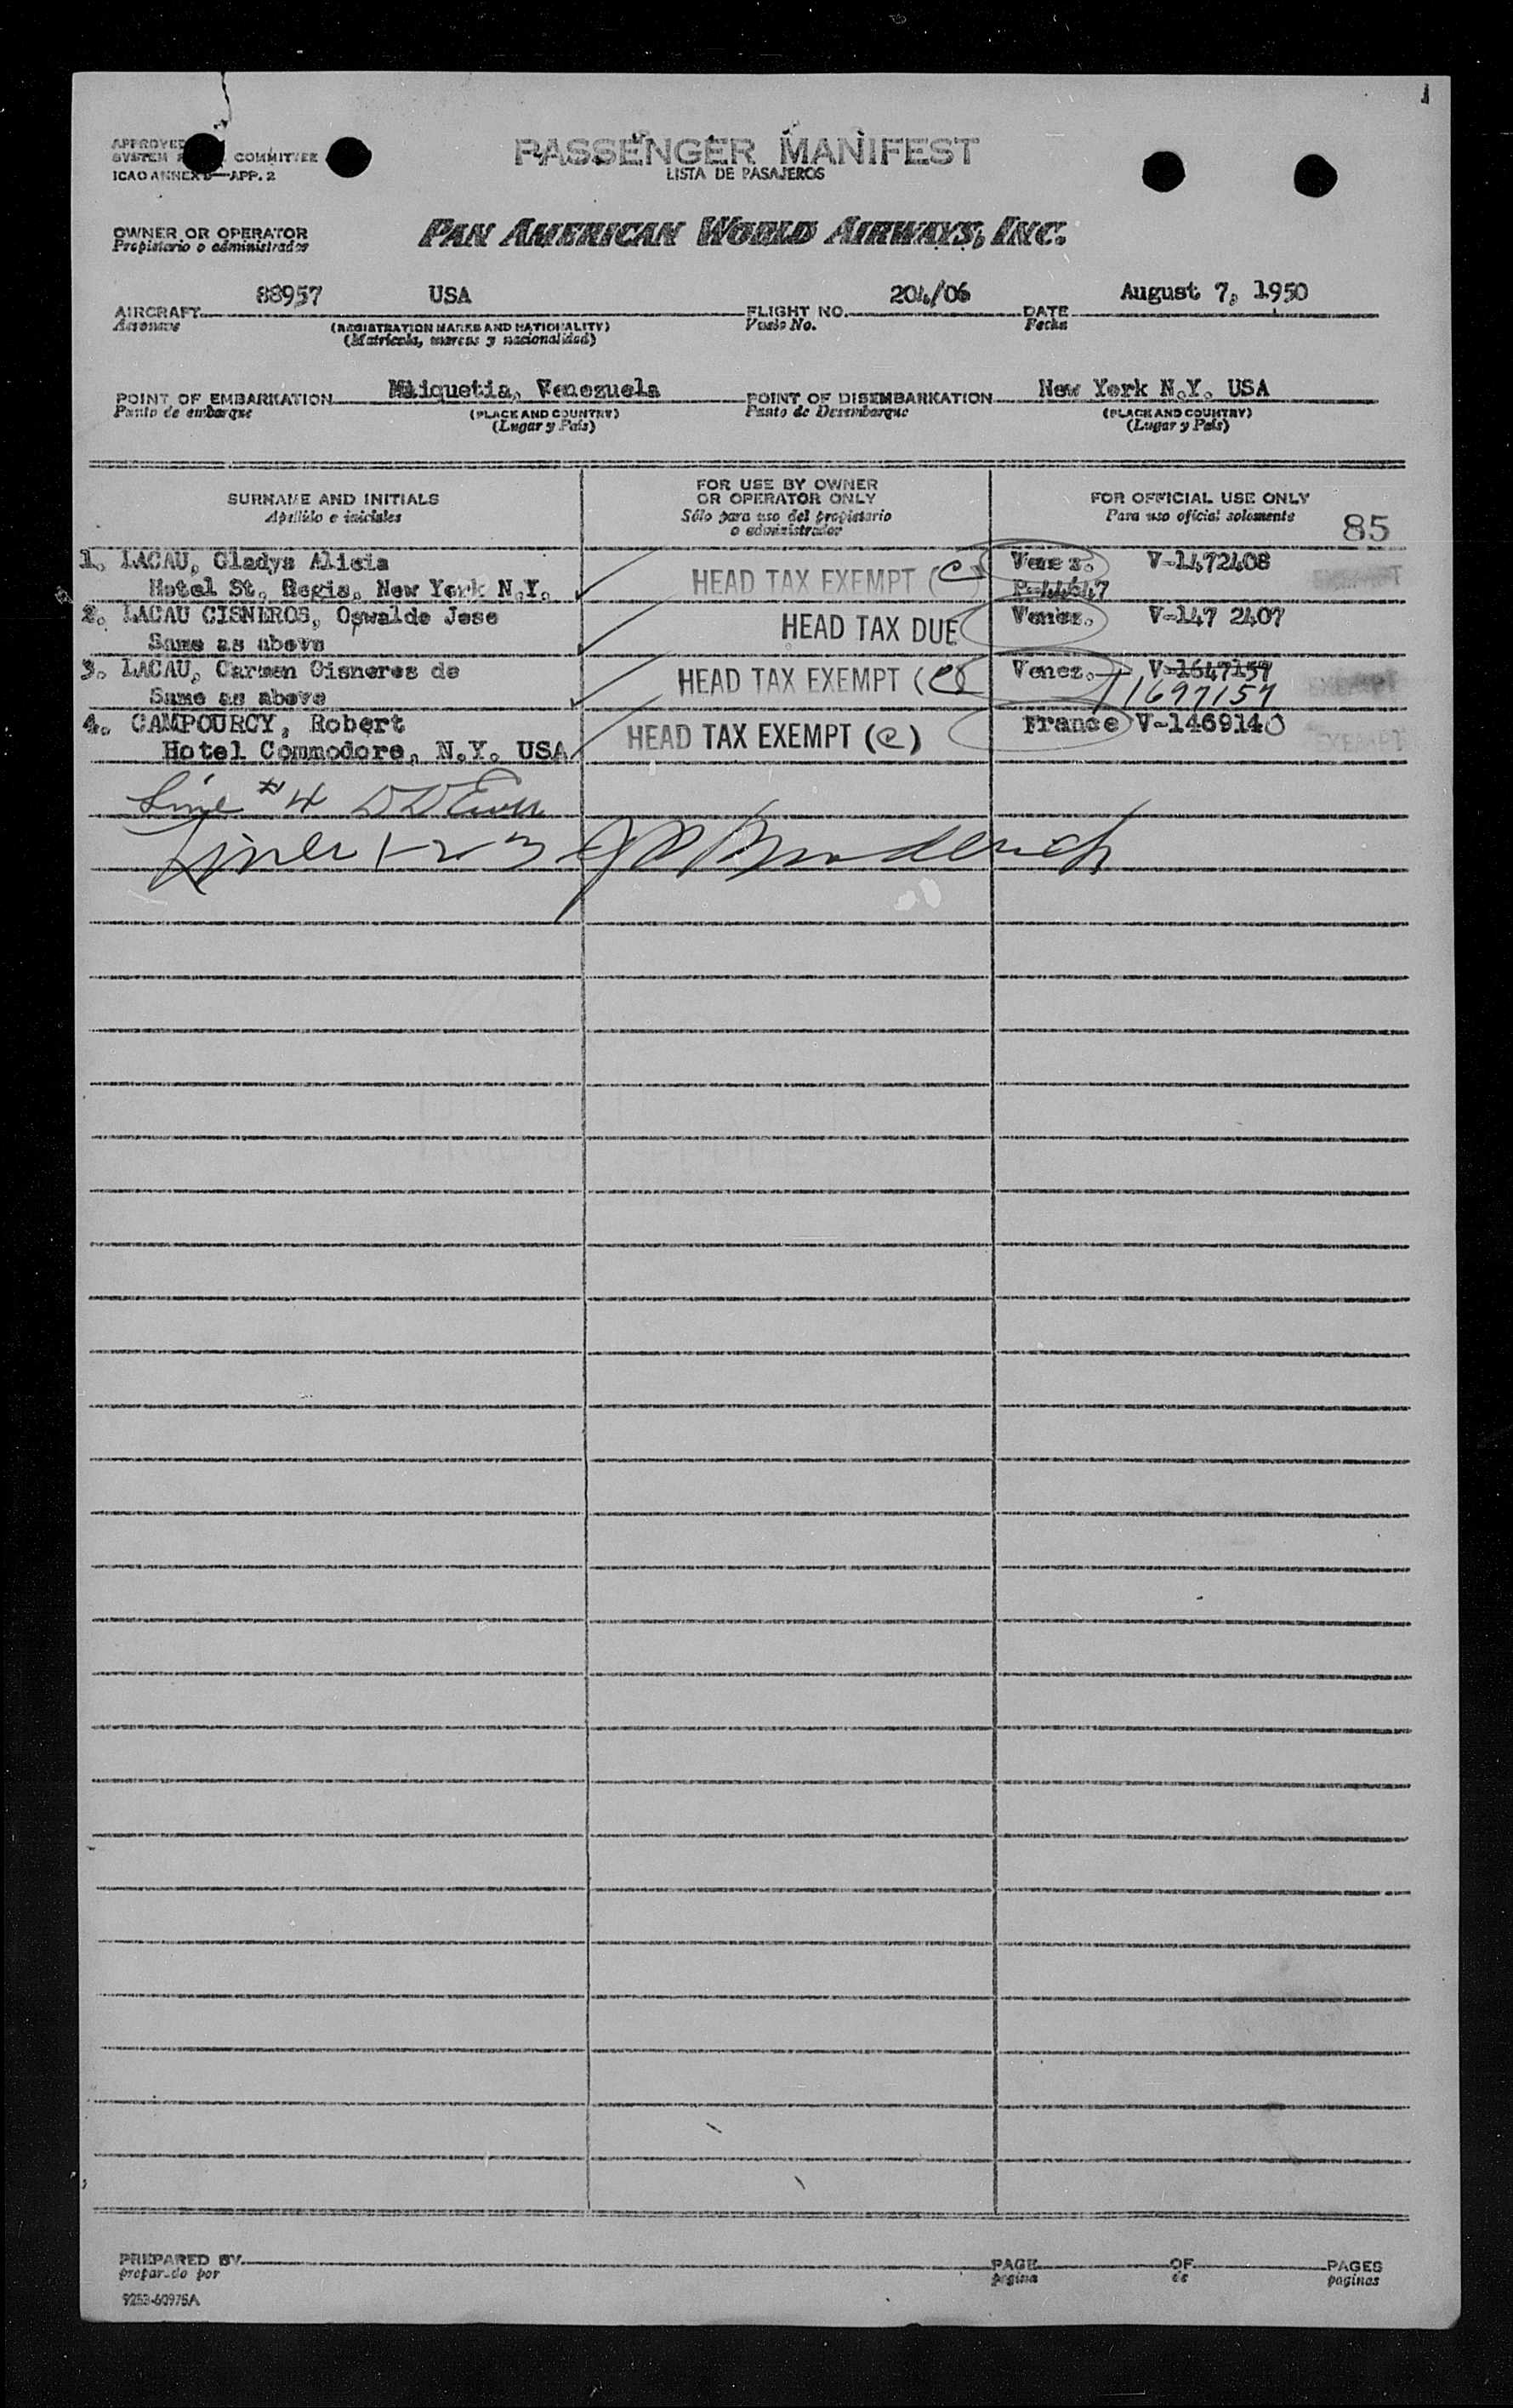 1
APPROVED
SYSTEM COMMITTEE
ICAO ANNEX APP. 2
PASSENGER MANIFEST
LISTA DE PASAJEROS
OWNER OR OPERATOR
Propietario o administrador
PAN AMERICAN WORLD AIRWAYS, INC.
AIRCRAFT 88957 USA FLIGHT NO. 204/06 DATE August 7, 1950
Aeronave (REGISTRATION MARKS AND NATIONALITY) Vuelo No. Fecha
(Matrícula, marcas y nacionalidad)
POINT OF EMBARKATION Maiquetia, Venezuela POINT OF DISEMBARKATION New York N.Y. USA
Punto de embarque (PLACE AND COUNTRY) Punto de Desembarque (PLACE AND COUNTRY)
(Lugar y País) (Lugar y País)
SURNAME AND INITIALS
Apellido e iniciales
FOR USE BY OWNER
OR OPERATOR ONLY
Sólo para uso del propietario
o administrador
FOR OFFICIAL USE ONLY
Para uso oficial solamente
85
1. LACAU, Gladys Alicia HEAD TAX EXEMPT (C) Venez. V-1472408
Hotel St. Regis, New York N.Y. P-44647 EXEMPT
2. LACAU CISNEROS, Oswalde Jose HEAD TAX DUE Venez. V-147 2407
Same as above
3. LACAU, Carmen Cisneros de HEAD TAX EXEMPT (C) Venez. V-1647157 EXEMPT
Same as above 1697157
4. CAMPOURCY, Robert HEAD TAX EXEMPT (C) France V-1469140
Hotel Commodore, N.Y. USA EXEMPT
Line #4
Lines 1-2-3
PREPARED BY PAGE OF PAGES
preparado por pagina de paginas
9253-60975A